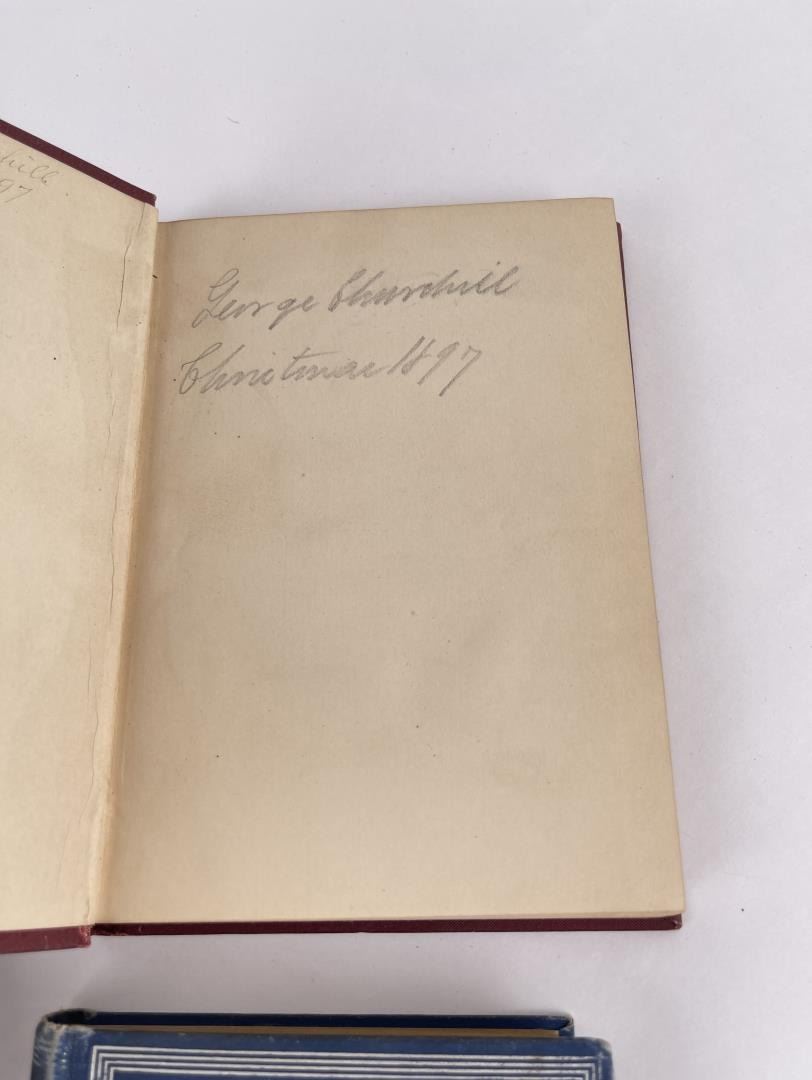 hill
97
George Churchill
Christmas 1897